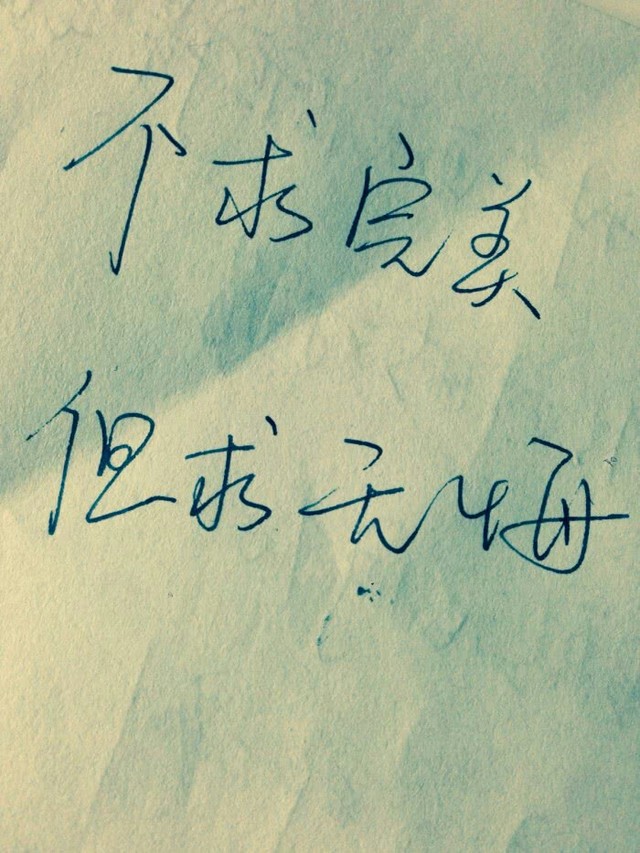 不求完美
但求无悔